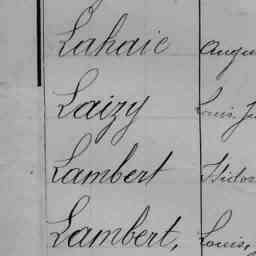 Lahaie Augu
Laizy Louis, Ju
Lambert Isidor
Lambert, Louis,